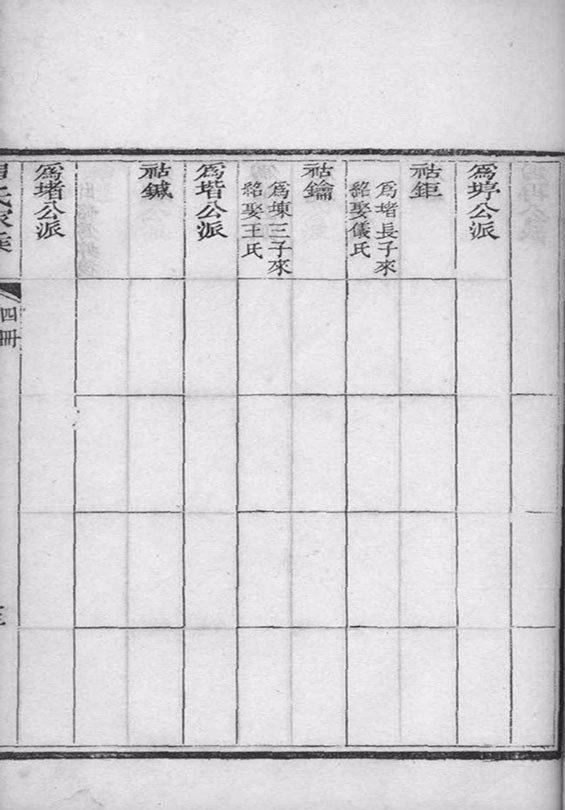 爲埻公派
祜鉅
爲堵長子來
紹娶儀氏
祜鑰
爲堜三子來
紹娶王氏
爲堦公派
祜鍼
爲堵公派
四冊